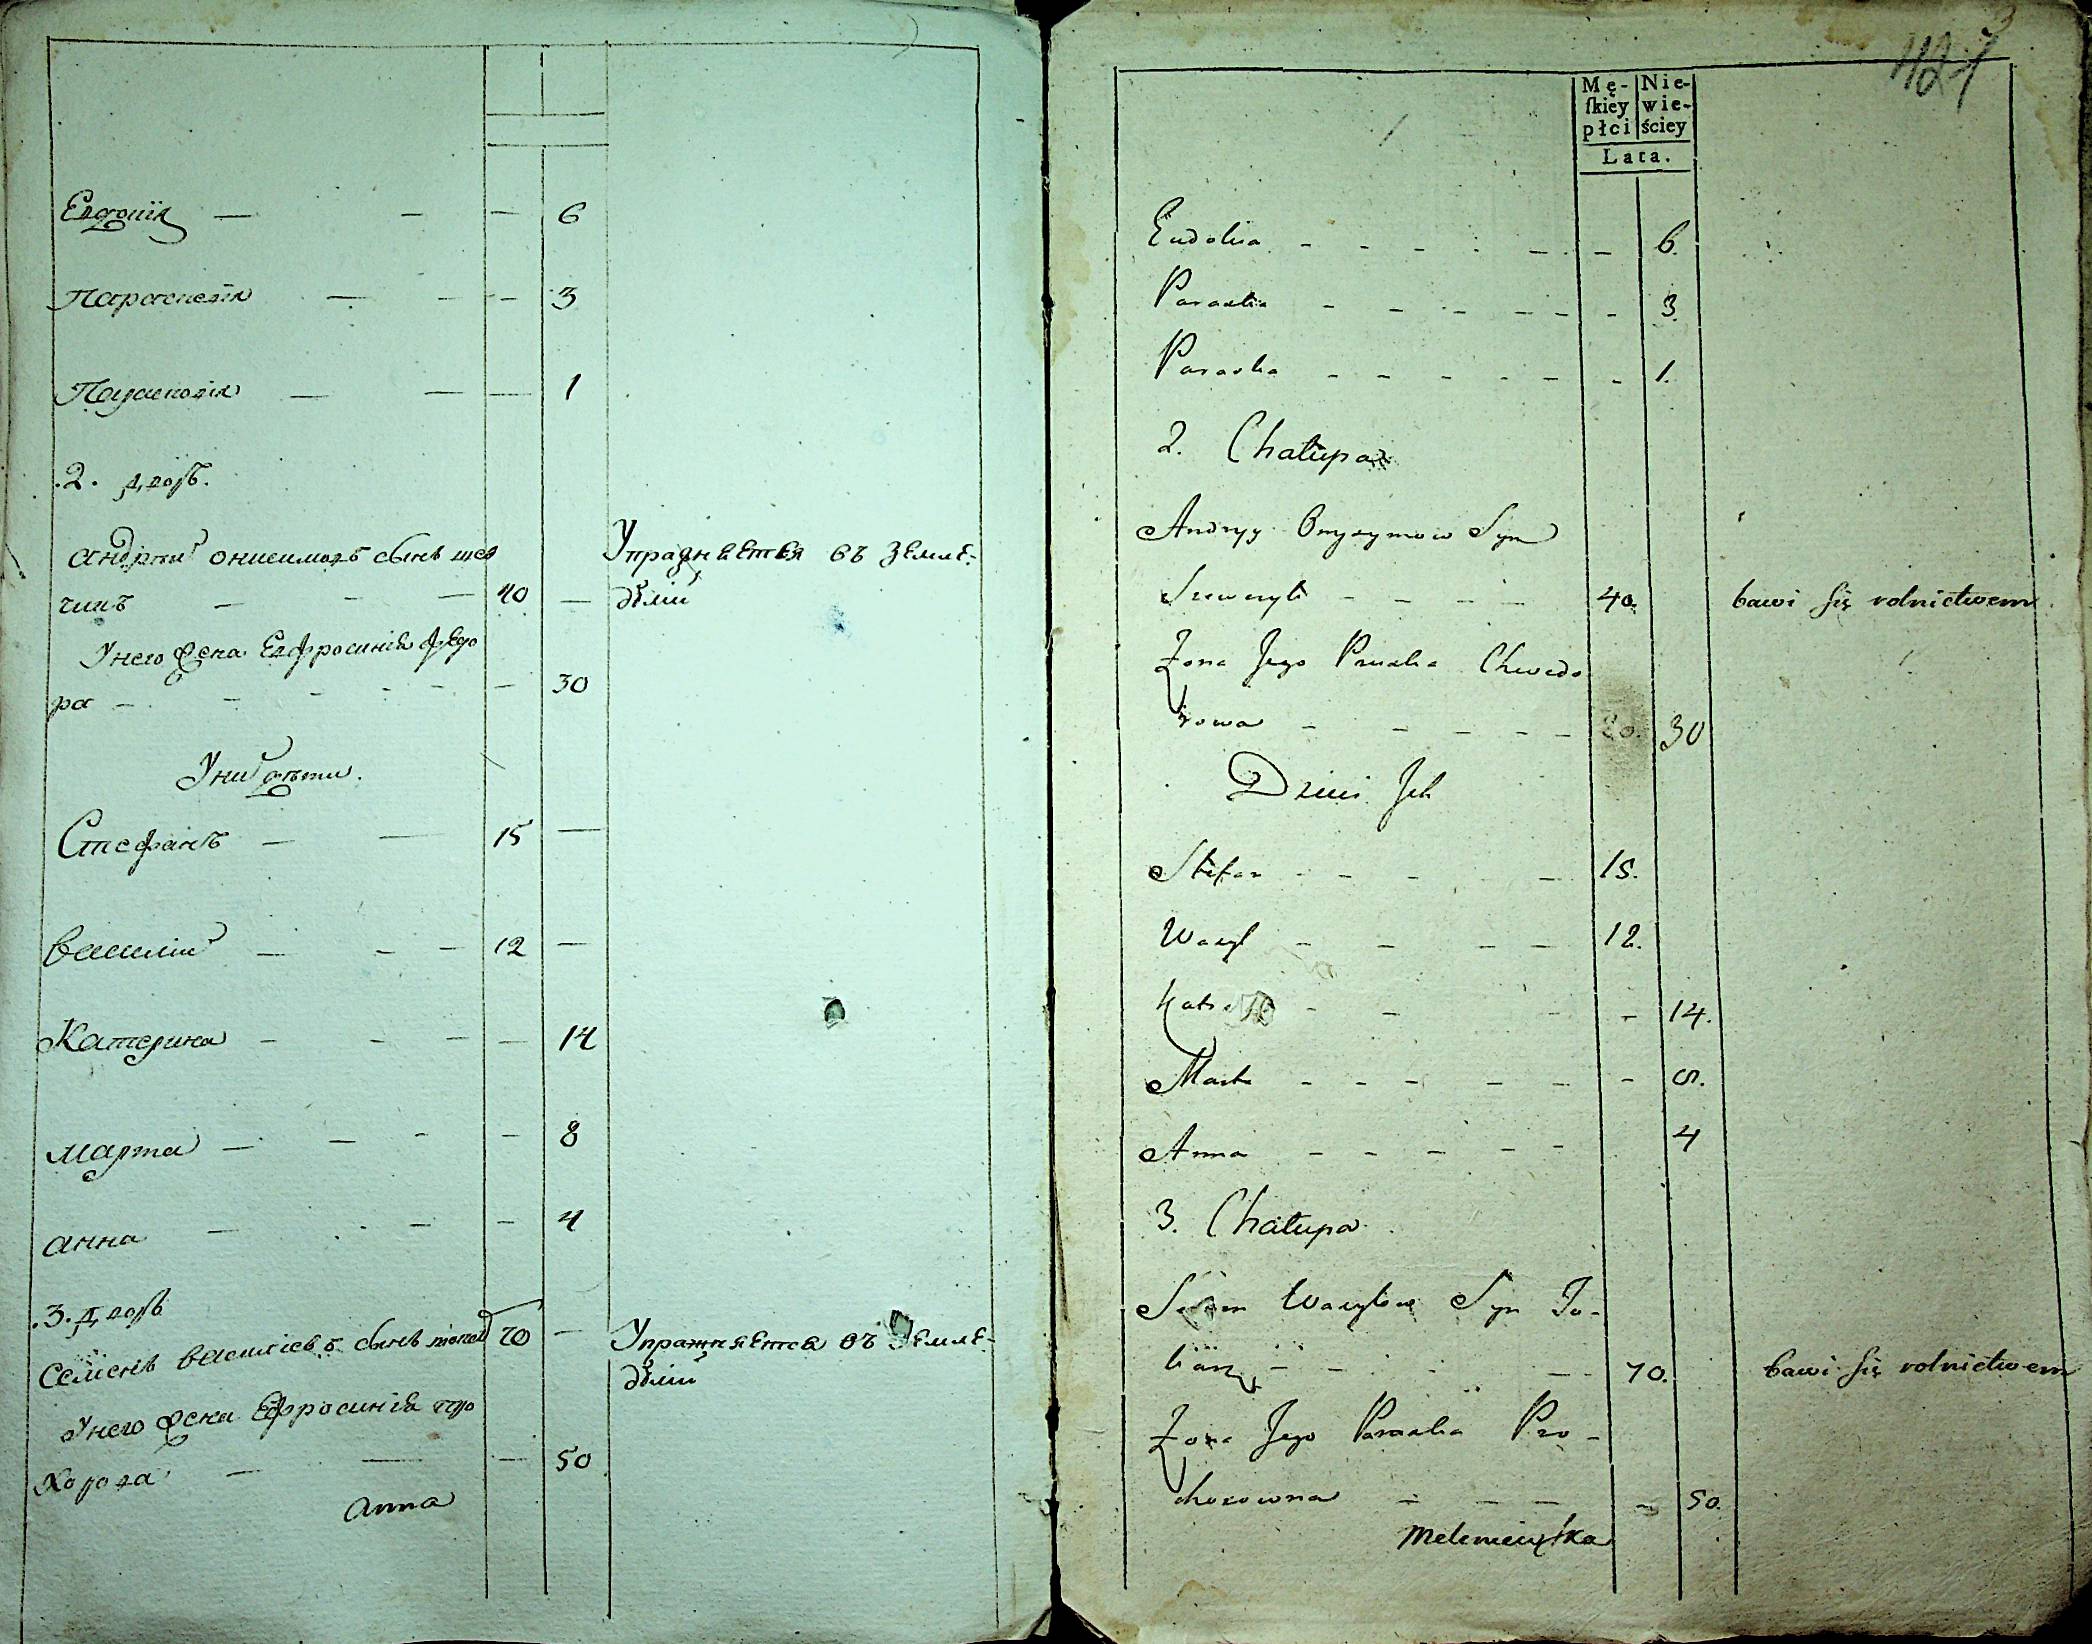 Евдокiя — — — 6
Параскевiя — — — 3
Параскевiя — — — 1
.2. дворъ.
андрѣй онисимовъ сынъ шев
чикъ — — — 40 — Упражняется въ земле-
дѣлiи
У него жена Евфросинiя федо
ра — — — — — 30
У них дѣти.
Стефанъ — — 15 —
василiй — — — 12 —
Катерина — — — — 14
марта — — — — 8
анна — — — 4
.3. дворъ
семенъ васильевъ сынъ 70 — Упражняется въ земле-
дѣлiи
У него жена Ефросинiя про
хорова — — — 50
анна
3
Mę- Nie-
ſkiey wie-
płci ściey
Lata.
Eudokia - - - - - - 6.
Paraska - - - - - - 3.
Paraska - - - - - - 1.
2. Chałupa
Andryy Onyzymow Syn
Szewczyk - - - - 40. bawi ſię rolnictwem
Żona Jego Chwedo
rowa - - - - - 30
Dzieci Jch
Stefan - - - - - 15.
Wasyl - - - - 12.
- - - - 14.
Marta - - - - - - 8.
Anna - - - - - 4
3. Chałupa
Wasylow Syn
- - - - 70. bawi ſię rolnictwem
Żona Jego Paraska Pro-
chorowna - - - - 50.